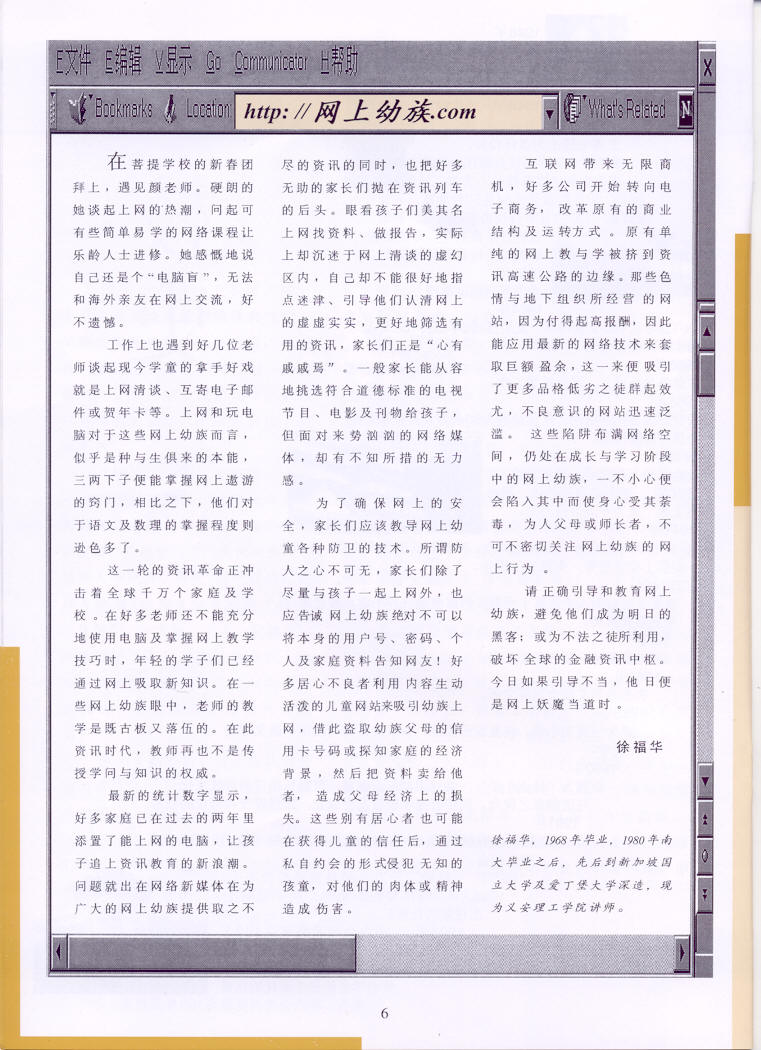 E文件 E编辑 V显示 Go Communicator H帮助
Bookmarks Location: http: // 网上幼族.com What's Related N
在菩提学校的新春团
拜上，遇见颜老师。硬朗的
她谈起上网的热潮，问起可
有些简单易学的网络课程让
乐龄人士进修。她感慨地说
自己还是个“电脑盲”，无法
和海外亲友在网上交流，好
不遗憾。
工作上也遇到好几位老
师谈起现今学童的拿手好戏
就是上网清谈、互寄电子邮
件或贺年卡等。上网和玩电
脑对于这些网上幼族而言，
似乎是种与生俱来的本能，
三两下子便能掌握网上遨游
的窍门，相比之下，他们对
于语文及数理的掌握程度则
逊色多了。
这一轮的资讯革命正冲
击着全球千万个家庭及学
校。在好多老师还不能充分
地使用电脑及掌握网上教学
技巧时，年轻的学子们已经
通过网上吸取新知识。在一
些网上幼族眼中，老师的教
学是既古板又落伍的。在此
资讯时代，教师再也不是传
授学问与知识的权威。
最新的统计数字显示，
好多家庭已在过去的两年里
添置了能上网的电脑，让孩
子追上资讯教育的新浪潮。
问题就出在网络新媒体在为
广大的网上幼族提供取之不
尽的资讯的同时，也把好多
无助的家长们抛在资讯列车
的后头。眼看孩子们美其名
上网找资料、做报告，实际
上却沉迷于网上清谈的虚幻
区内，自己却不能很好地指
点迷津、引导他们认清网上
的虚虚实实，更好地筛选有
用的资讯，家长们正是“心有
戚戚焉”。一般家长能从容
地挑选符合道德标准的电视
节目、电影及刊物给孩子，
但面对来势汹汹的网络媒
体，却有不知所措的无力
感。
为了确保网上的安
全，家长们应该教导网上幼
童各种防卫的技术。所谓防
人之心不可无，家长们除了
尽量与孩子一起上网外，也
应告诫网上幼族绝对不可以
将本身的用户号、密码、个
人及家庭资料告知网友！好
多居心不良者利用内容生动
活泼的儿童网站来吸引幼族上
网，借此盗取幼族父母的信
用卡号码或探知家庭的经济
背景，然后把资料卖给他
者，造成父母经济上的损
失。这些别有居心者也可能
在获得儿童的信任后，通过
私自约会的形式侵犯无知的
孩童，对他们的肉体或精神
造成伤害。
互联网带来无限商
机，好多公司开始转向电
子商务，改革原有的商业
结构及运转方式。原有单
纯的网上教与学被挤到资
讯高速公路的边缘。那些色
情与地下组织所经营的网
站，因为付得起高报酬，因此
能应用最新的网络技术来套
取巨额盈余，这一来便吸引
了更多品格低劣之徒群起效
尤，不良意识的网站迅速泛
滥。这些陷阱布满网络空
间，仍处在成长与学习阶段
中的网上幼族，一不小心便
会陷入其中而使身心受其荼
毒，为人父母或师长者，不
可不密切关注网上幼族的网
上行为。
请正确引导和教育网上
幼族，避免他们成为明日的
黑客；或为不法之徒所利用，
破坏全球的金融资讯中枢。
今日如果引导不当，他日便
是网上妖魔当道时。
徐福华
徐福华，1968年毕业，1980年南
大毕业之后，先后到新加坡国
立大学及爱丁堡大学深造，现
为义安理工学院讲师。
6